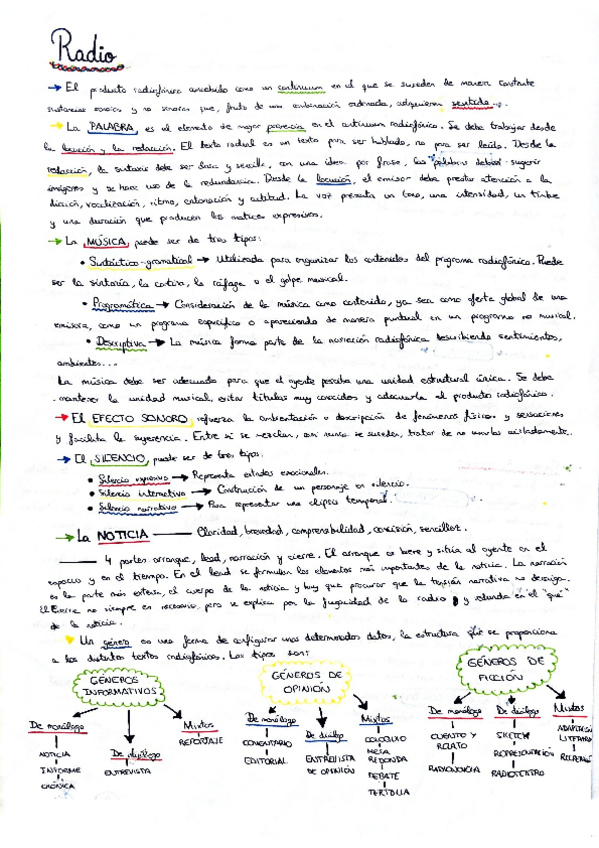 Radio
→ El producto radiofónico concebido como un continuum en el que se suceden de manera constante
sustancias sonoras y no sonoras que, fruto de una combinación ordenada, adquieren sentido.
→ La PALABRA, es el elemento de mayor presencia en el continuum radiofónico. Se debe trabajar desde
la locución y la redacción. El texto radial es un texto para ser hablado, no para ser leído. Desde la
redacción, la sintaxis debe ser clara y sencilla, con una idea por frase, las palabras deben sugerir
imágenes y se hace uso de la redundancia. Desde la locución, el emisor debe prestar atención a la
dicción, vocalización, ritmo, entonación y actitud. La voz presenta un tono, una intensidad, un timbre
y una duración que producen los matices expresivos.
→ La MÚSICA, puede ser de tres tipos:
• Sintáctico-gramatical → Utilizada para organizar los contenidos del programa radiofónico. Puede
ser la sintonía, la cortina, la ráfaga o el golpe musical.
• Programática → Consideración de la música como contenido, ya sea como oferta global de una
emisora, como un programa específico o apareciendo de manera puntual en un programa no musical.
• Descriptiva → La música forma parte de la narración radiofónica describiendo sentimientos,
ambientes...
La música debe ser adecuada para que el oyente perciba una unidad estructural única. Se debe
mantener la unidad musical, evitar títulos muy conocidos y adecuarla al producto radiofónico.
→ El EFECTO SONORO, refuerza la ambientación o descripción de fenómenos físicos y sensaciones
y facilita la sugerencia. Entre sí se mezclan, nunca se suceden, tratar de no usarlos aisladamente.
→ El SILENCIO, puede ser de tres tipos:
• Silencio expresivo → Representa estados emocionales.
• Silencio interactivo → Contrucción de un personaje en silencio.
• Silencio narrativo → Para representar una elipsis temporal.
→ La NOTICIA — Claridad, brevedad, comprensibilidad, concisión, sencillez.
— 4 partes: arranque, lead, narración y cierre. El arranque es breve y sitúa al oyente en el
espacio y en el tiempo. En el lead se formulan los elementos más importantes de la noticia. La narración
es la parte más extensa, el cuerpo de la noticia y hay que procurar que la tensión narrativa no decaiga.
El cierre no siempre es necesario, pero se explica por la fugacidad de la radio y redunda en el "qué"
de la noticia.
→ Un género es una forma de configurar unos determinados datos, la estructura que se proporciona
a los distintos textos radiofónicos. Los tipos son:
GÉNEROS INFORMATIVOS
De monólogo
NOTICIA
INFORME
CRÓNICA
De diálogo
ENTREVISTA
Mixtos
REPORTAJE
GÉNEROS DE OPINIÓN
De monólogo
COMENTARIO
EDITORIAL
De diálogo
ENTREVISTA
DE OPINIÓN
Mixtos
COLOQUIO
MESA
REDONDA
DEBATE
TERTULIA
GÉNEROS DE FICCIÓN
De monólogo
CUENTO Y
RELATO
De diálogo
SKETCH
REPRESENTACIÓN
RADIOTEATRO
Mixtos